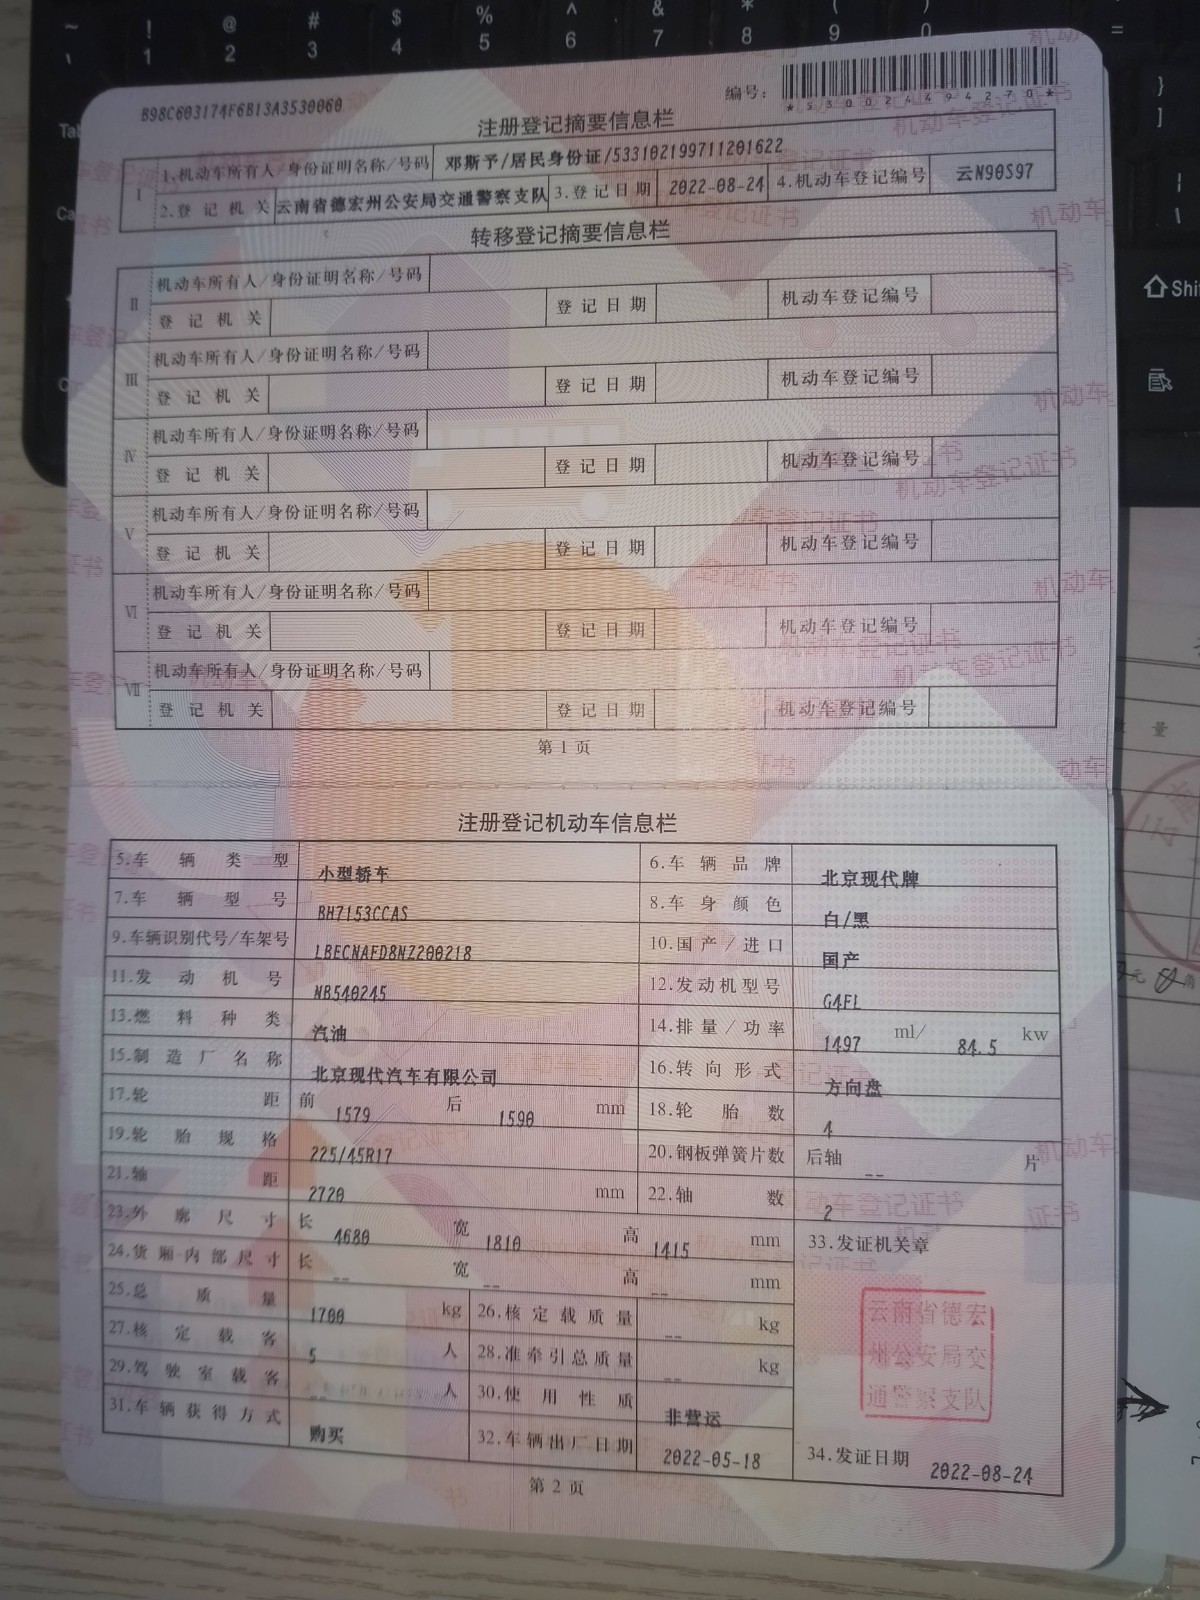 B98C603174F6B13A3530060
编号：
*530024494270*
注册登记摘要信息栏
Ⅰ 1.机动车所有人/身份证明名称/号码 邓斯予/居民身份证/533102199711201622
2.登记机关 云南省德宏州公安局交通警察支队 3.登记日期 2022-08-24 4.机动车登记编号 云N90S97
转移登记摘要信息栏
Ⅱ 机动车所有人/身份证明名称/号码
登记机关 登记日期 机动车登记编号
Ⅲ 机动车所有人/身份证明名称/号码
登记机关 登记日期 机动车登记编号
Ⅳ 机动车所有人/身份证明名称/号码
登记机关 登记日期 机动车登记编号
Ⅴ 机动车所有人/身份证明名称/号码
登记机关 登记日期 机动车登记编号
Ⅵ 机动车所有人/身份证明名称/号码
登记机关 登记日期 机动车登记编号
Ⅶ 机动车所有人/身份证明名称/号码
登记机关 登记日期 机动车登记编号
第1页
注册登记机动车信息栏
5.车辆类型 小型轿车 6.车辆品牌 北京现代牌
7.车辆型号 BH7153CCAS 8.车身颜色 白/黑
9.车辆识别代号/车架号 LBECNAFD8NZ200218 10.国产/进口 国产
11.发动机号 NB540245 12.发动机型号 G4FL
13.燃料种类 汽油 14.排量/功率 1497 ml/ 84.5 kw
15.制造厂名称 北京现代汽车有限公司 16.转向形式 方向盘
17.轮距 前 1579 后 1590 mm 18.轮胎数 4
19.轮胎规格 225/45R17 20.钢板弹簧片数 后轴 -- 片
21.轴距 2720 mm 22.轴数 2
23.外廓尺寸 长 4680 宽 1810 高 1415 mm 33.发证机关章
24.货厢内部尺寸 长 -- 宽 -- 高 -- mm
25.总质量 1700 kg 26.核定载质量 -- kg
27.核定载客 5 人 28.准牵引总质量 -- kg
29.驾驶室载客 -- 人 30.使用性质 非营运
31.车辆获得方式 购买 32.车辆出厂日期 2022-05-18 34.发证日期 2022-08-24
云南省德宏
州公安局交
通警察支队
第2页